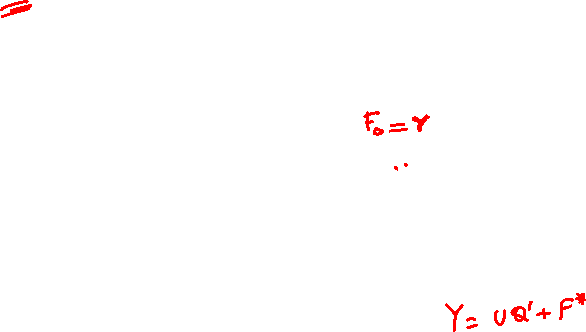 F₀ = Y
Y = UQ' + F*